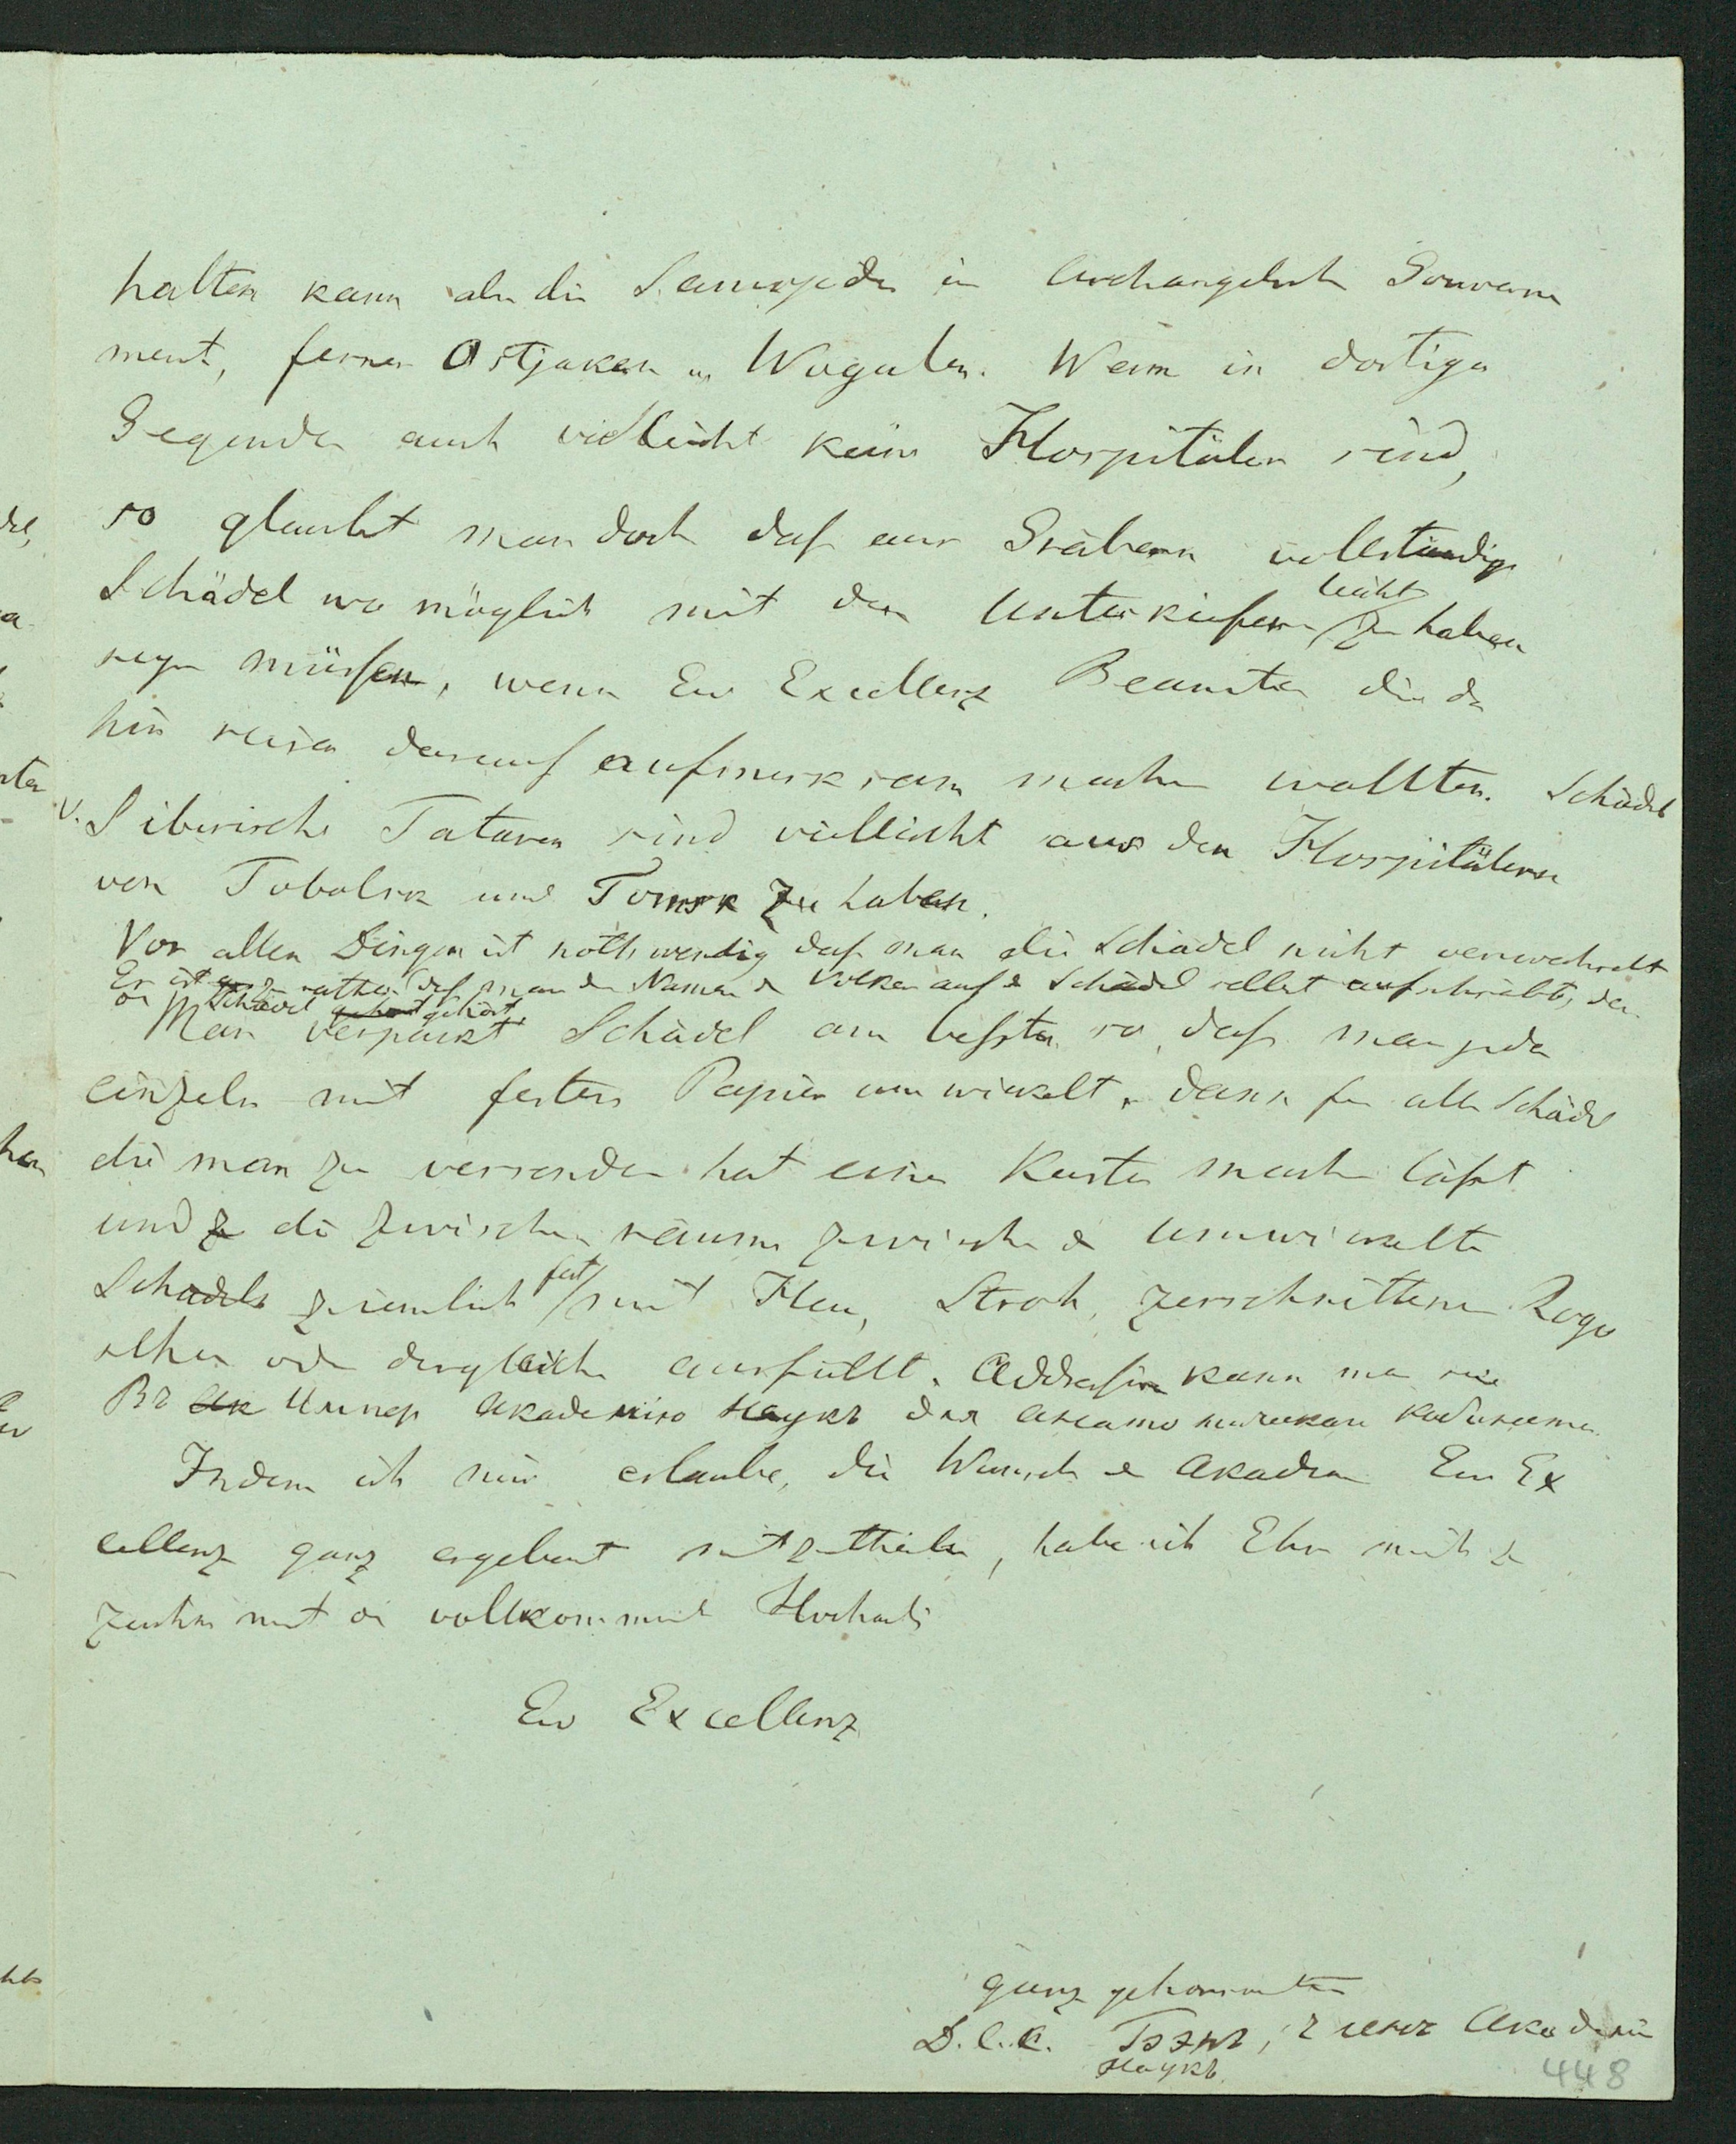 halten kann als die Samojeden im Archangelsch Gouverne
ment, ferner Ostjaken u. Wogulen. Wenn in dortigen
Gegenden auch vielleicht keine Hospitäler sind,
so glaubt man doch daß aus Gräbern vollständige
Schädel wo möglich mit den Unterkiefern leicht zu haben
seyn müssen, wenn Ew Excellenz Beamten die da
hin reisen darauf aufmerksam machen wollten. Schädel
v. Sibirische Tataren sind vielleicht aus den Hospitälern
von Tobolsk und Tomsk zu haben.
Vor allen Dingen ist nothwendig daß man die Schädel nicht verwechselt
Es ist rathen daß man den Namen d Volkes auf d Schädel selbst aufschreibt, dem
d Schädel gehört.
Man verpackt Schädel am besten so, daß man jeden
einzeln mit festem Papier umwickelt, dann für alle Schädel
die man zu versenden hat einen Kasten machen läßt
und die Zwischenräume zwischen d umwickelten
Schädeln ziemlich fest mit Heu, Stroh, zerschnittenen Rogo
schen oder dergleichen ausfüllt. Addressiren kann man sie
Въ Импер Академiю Наукъ для Анатомическаго Кабинета
Indem ich mir erlaube, die Wünsche d Akademie Ew Ex
cellenz ganz ergebenst mitzutheilen, habe ich Ehre mich zu
zeichnen mit d vollkommensten Hochacht
Ew Excellenz
ganz gehorsamster
Д. С. С. Бэръ, членъ Академiи
Наукъ.
448